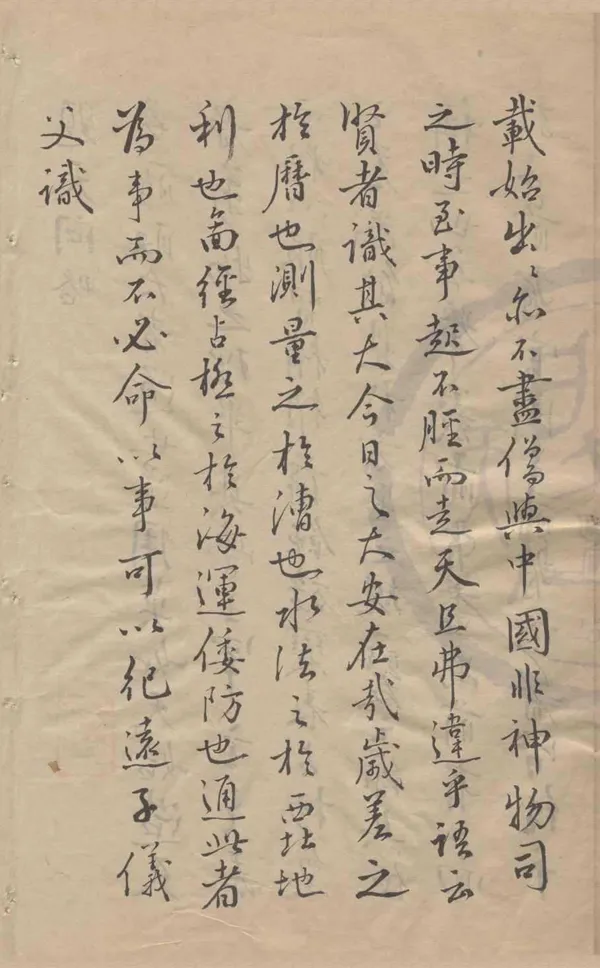 載始出〻亦不盡僞與中國非神物司
之時至事起不脛而走天且弗違乎語云
賢者識其大今日之大安在哉歲差之
於曆也測量之於漕也水法之於西北地
利也啚經占極之於海運倭防也通此者
為事而不必命以事可以紀遠子儀
父識